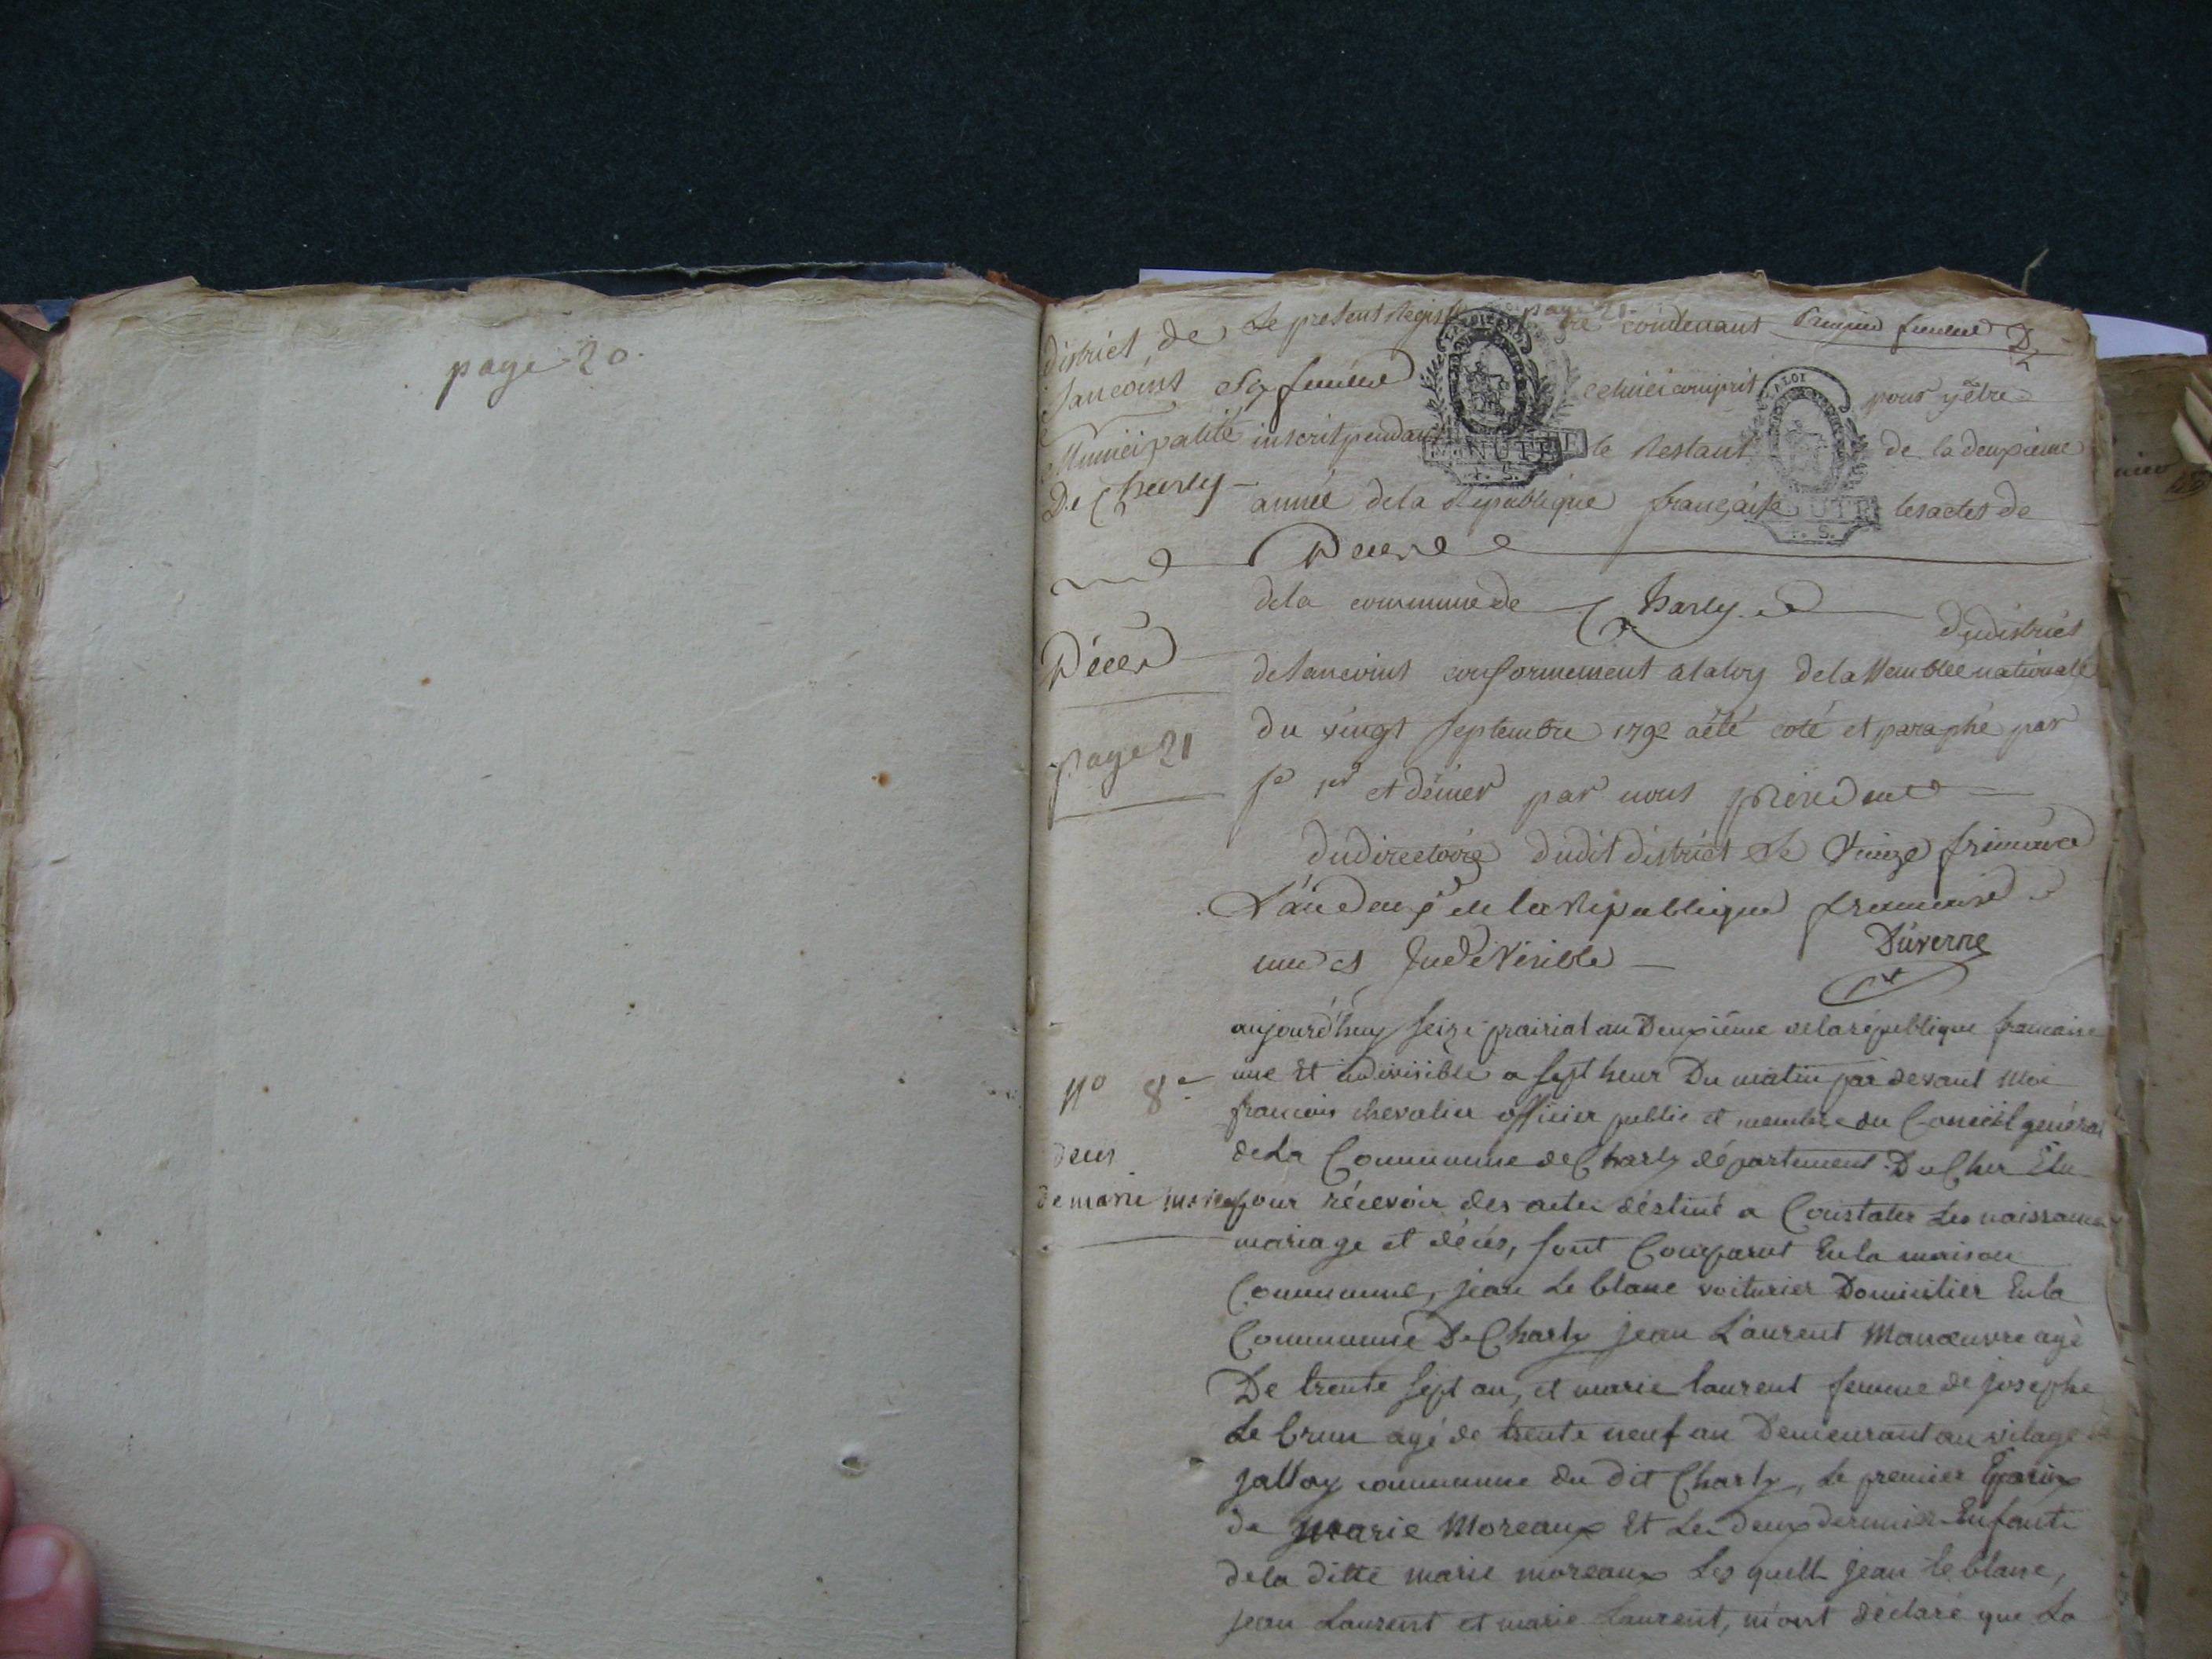 page 20.
page 21.
district de
Sancoins
Municipalité
De Charly
Le present Registre contenant Premier feuillet
Six feuillet celui ci compris pour y être
inscrit pendant le Restant de la deuxieme
année de la Republique française les actes de
Décès
de la commune de Charly du district
Décès
de Sancoins conformement a la loy de lassemblee nationale
du vingt septembre 1792 aété coté et paraphé par
page 21
pr et dernier par nous président
du directoire dudit district Le frimaire
L'an deux de la Republique francaise
une et Indivisible
Duverne
aujourd'huy seize prairial an Deuxiême de la république francaise
une Et indivisible a sept heur Du matin par devant Moi
N° 8e
francois chevalier officier public et membre du Conseil general
de La Communne de Charly département Du Cher Elu
deces
de marie moreau
pour récevoir des actes déstiné a Constater Les naissance
mariage et décés, sont Comparut En la maison
Communne, jean Le blanc voiturier Domicilier En la
Communne De Charly jean Laurent Manœuvre agé
De trente sept an, et marie laurent femme de josephe
Le brun agé de trente neuf an Demeurant au vilage de
jalloy communne du dit Charly, Le premier Epoux
de Marie Moreaux Et Les deux dernier Enfants
de la ditte marie moreaux Les quell jean le blanc,
jean Laurent et marie Laurent, m'ont déclaré que La
MINUTE
LA LOI